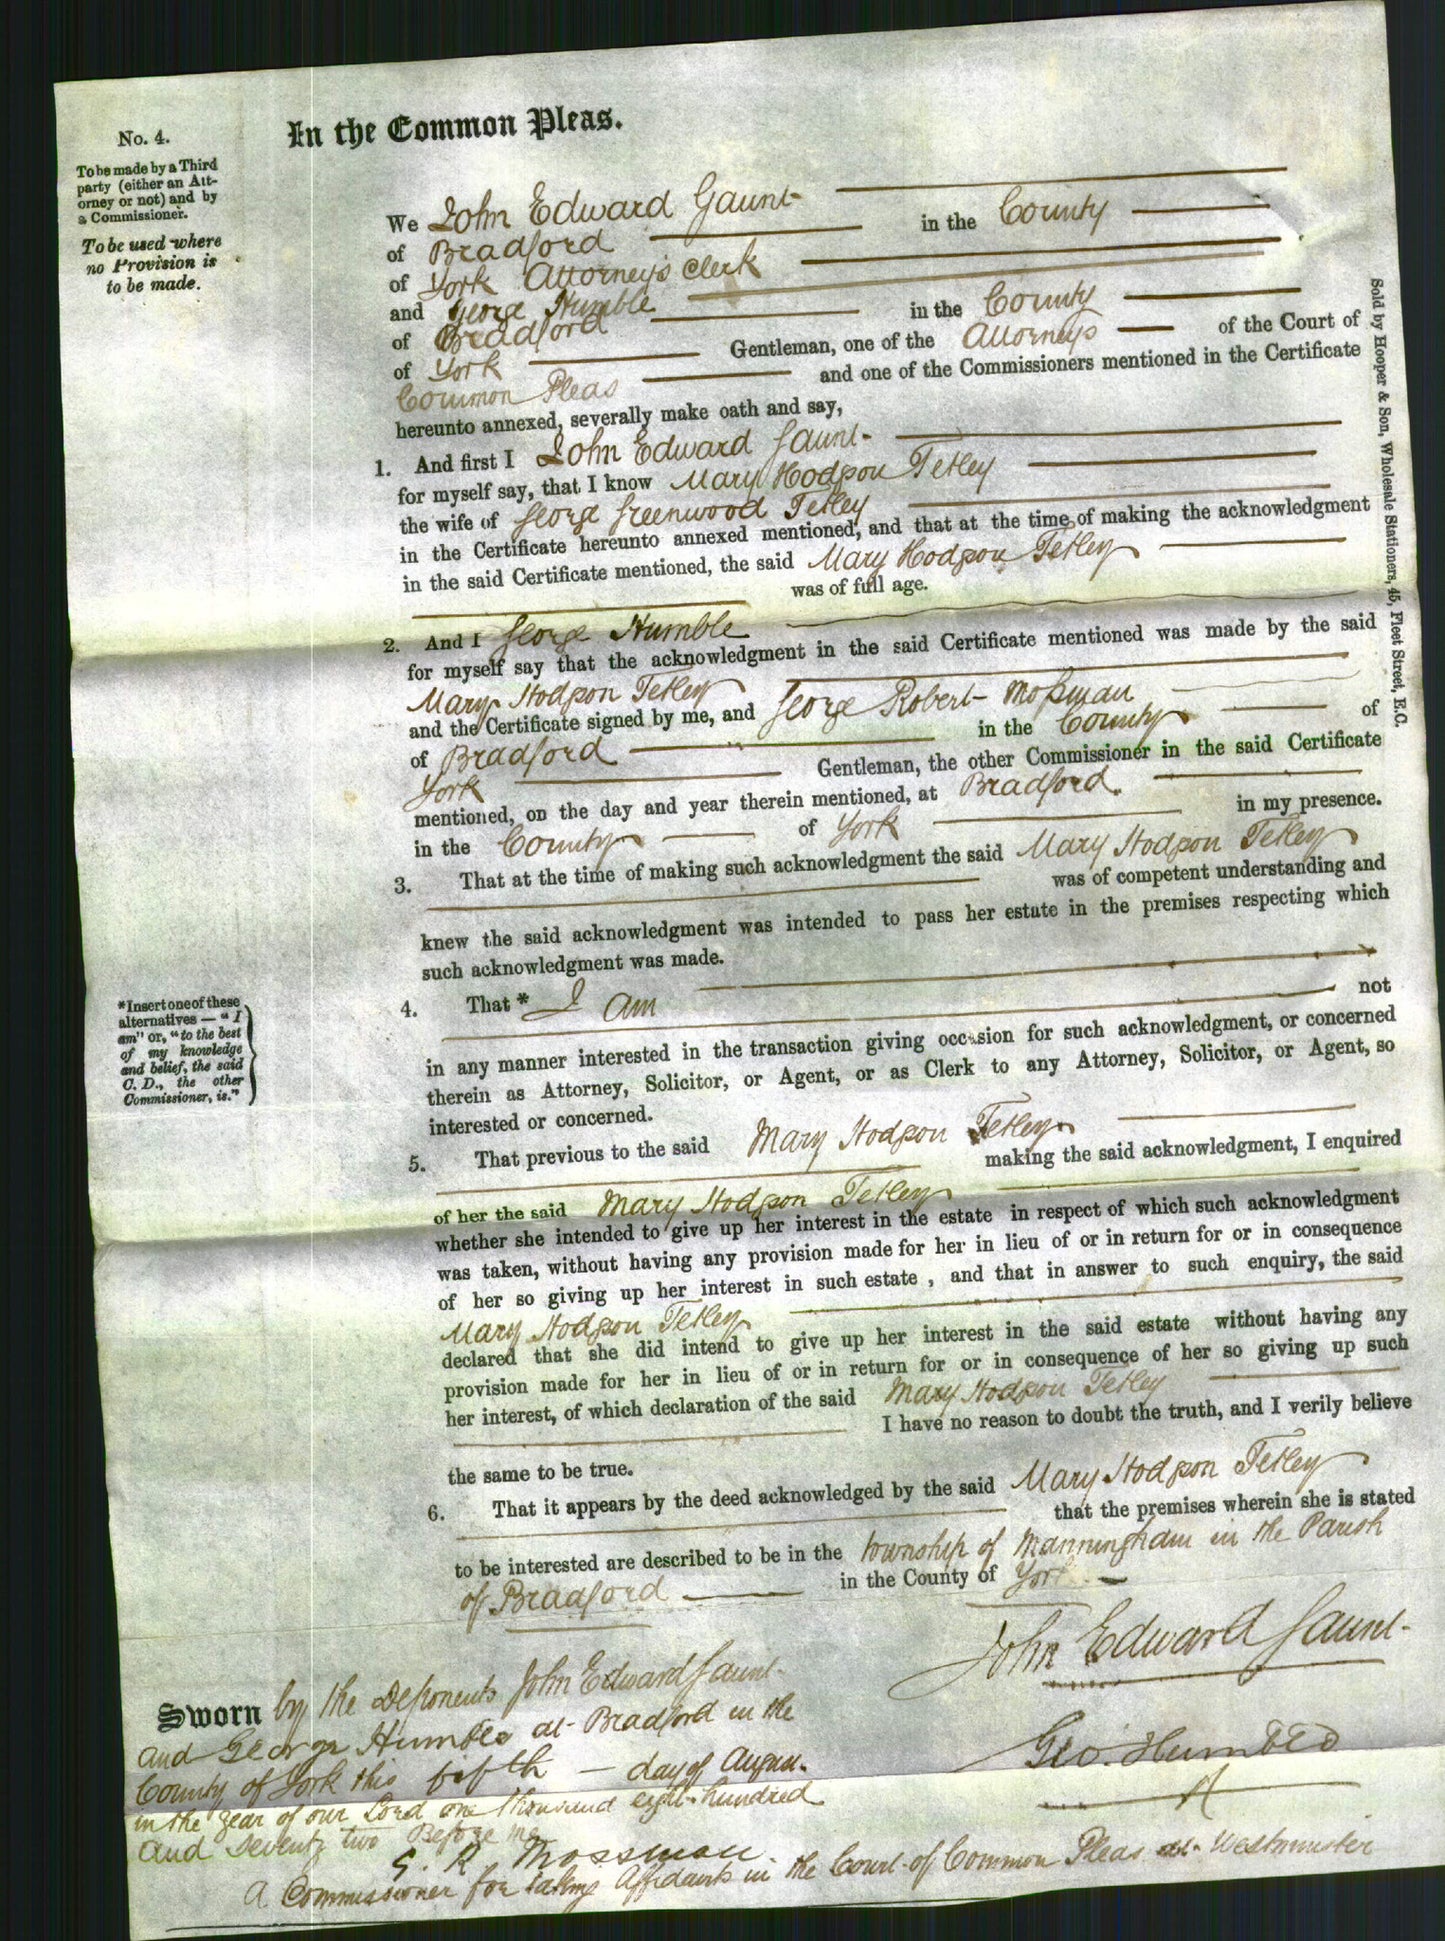 No. 4.
To be made by a Third
party (either an Att-
orney or not) and by
a Commissioner.
To be used where
no Provision is
to be made.
In the Common Pleas.
We John Edward Gaunt
of Bradford in the County
of York Attorney's Clerk
and George Humble
of Bradford in the County
of York Gentleman, one of the Attorneys of the Court of
Common Pleas and one of the Commissioners mentioned in the Certificate
hereunto annexed, severally make oath and say,
1. And first I John Edward Gaunt
for myself say, that I know Mary Hodgson Tetley
the wife of George Greenwood Tetley
in the Certificate hereunto annexed mentioned, and that at the time of making the acknowledgment
in the said Certificate mentioned, the said Mary Hodgson Tetley
was of full age.
2. And I George Humble
for myself say that the acknowledgment in the said Certificate mentioned was made by the said
Mary Hodgson Tetley
and the Certificate signed by me, and George Robert Mossman
of Bradford in the County of
York Gentleman, the other Commissioner in the said Certificate
mentioned, on the day and year therein mentioned, at Bradford.
in the County of York in my presence.
3. That at the time of making such acknowledgment the said Mary Hodgson Tetley
was of competent understanding and
knew the said acknowledgment was intended to pass her estate in the premises respecting which
such acknowledgment was made.
*Insert one of these
alternatives — "I
am" or, "to the best
of my knowledge
and belief, the said
C. D., the other
Commissioner, is."
4. That * I am not
in any manner interested in the transaction giving occasion for such acknowledgment, or concerned
therein as Attorney, Solicitor, or Agent, or as Clerk to any Attorney, Solicitor, or Agent, so
interested or concerned.
5. That previous to the said Mary Hodgson Tetley
making the said acknowledgment, I enquired
of her the said Mary Hodgson Tetley
whether she intended to give up her interest in the estate in respect of which such acknowledgment
was taken, without having any provision made for her in lieu of or in return for or in consequence
of her so giving up her interest in such estate , and that in answer to such enquiry, the said
Mary Hodgson Tetley
declared that she did intend to give up her interest in the said estate without having any
provision made for her in lieu of or in return for or in consequence of her so giving up such
her interest, of which declaration of the said Mary Hodgson Tetley
I have no reason to doubt the truth, and I verily believe
the same to be true.
6. That it appears by the deed acknowledged by the said Mary Hodgson Tetley
that the premises wherein she is stated
to be interested are described to be in the township of Manningham in the Parish
of Bradford in the County of York
John Edward Gaunt
Geo. Humble
Sworn by the Deponents John Edward Gaunt
and George Humble at Bradford in the
County of York this fifth day of August
in the year of our Lord one thousand eight hundred
and seventy two Before me
G. R. Mossman
A Commissioner for taking Affidavits in the Court of Common Pleas at Westminster
Sold by Hooper & Son, Wholesale Stationers, 45, Fleet Street, E.C.